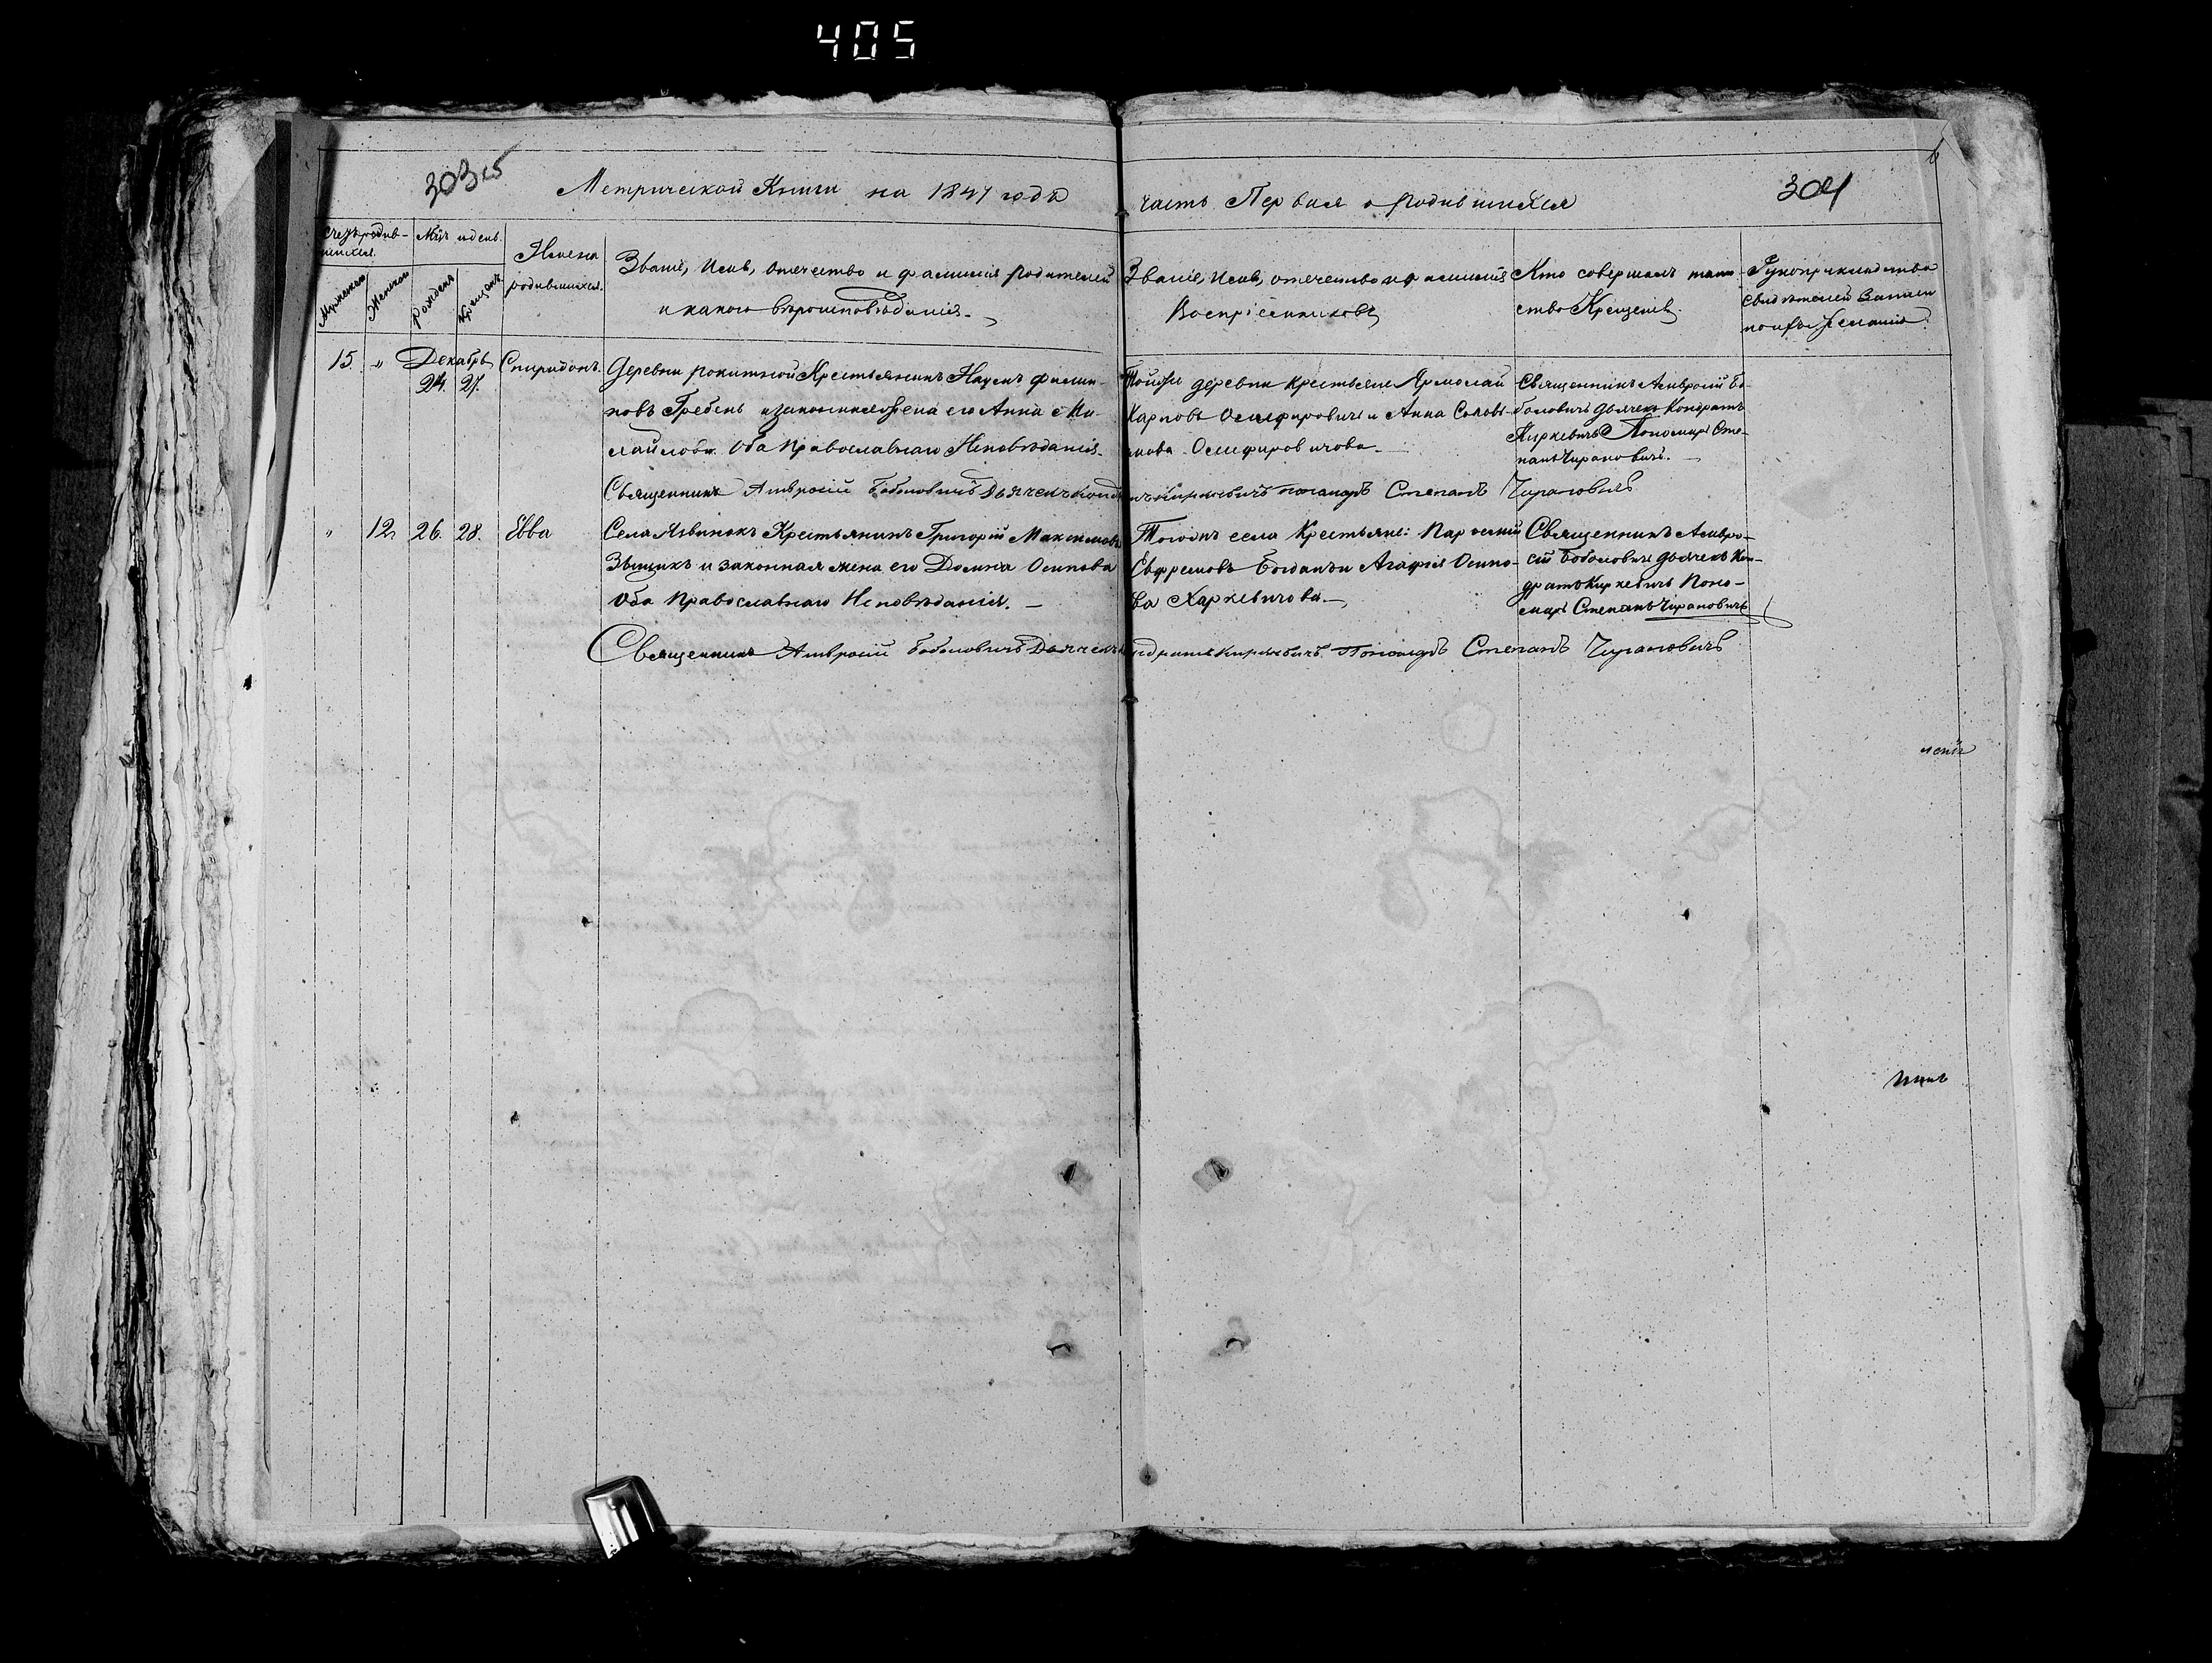 405
303 25
Метрической Книги на 1847 года часть Первая о родившихся
304
Счетъ родив-
шихся.
Мужеска
Женска
Мцъ и день.
рожден
крещен
Имена
родившихся.
Званіе, Имя, Отечество и фамилія родителей
и какого вѣроисповѣданія.
Званіе, Имя, отечество и фамилія
Воспріемниковъ
Кто совершалъ таин-
ство Крещенія
Рукоприкладства
свидѣтелей Записи
по их желанію
15. " Декабрь
24. 27.
Спиридонъ.
Деревни рокитной Крестьянинъ Наумъ Филип-
повъ Гребень и законная жена его Анна Ми-
хайлова. Оба Православнаго Исповѣданія.
Тойже деревни крестьяне Ярмолай
Карповъ Олиферовичъ и Анна
Олиферовичова.
Священникъ Амвросій Бо-
боловичъ дьячекъ Кондратъ
Киркевичъ Пономарь Сте-
панъ Чирановичъ.
Священникъ Амвросій Боболовичъ Дьячекъ Конд Киркевичъ пономарь Степанъ Чирановичъ
" 12. 26. 28. Евва
Села Язвинокъ Крестьянинъ Григорій Максимовъ
и законная жена его Домна Осипова
Оба Православнаго Исповѣданія.
Тогожъ села Крестьяне:
Ефремовъ Богданъ и Агафія Осипо-
ва Харкевичова.
Священникъ Амвро-
сій Боболовичъ дьячекъ Кон-
дратъ Киркевичъ Поно-
марь Степанъ Чирановичъ
Священникъ Амвросій Боболовичъ Дьячекъ ндратъ Киркевичъ. Пономарь Степанъ Чирановичъ